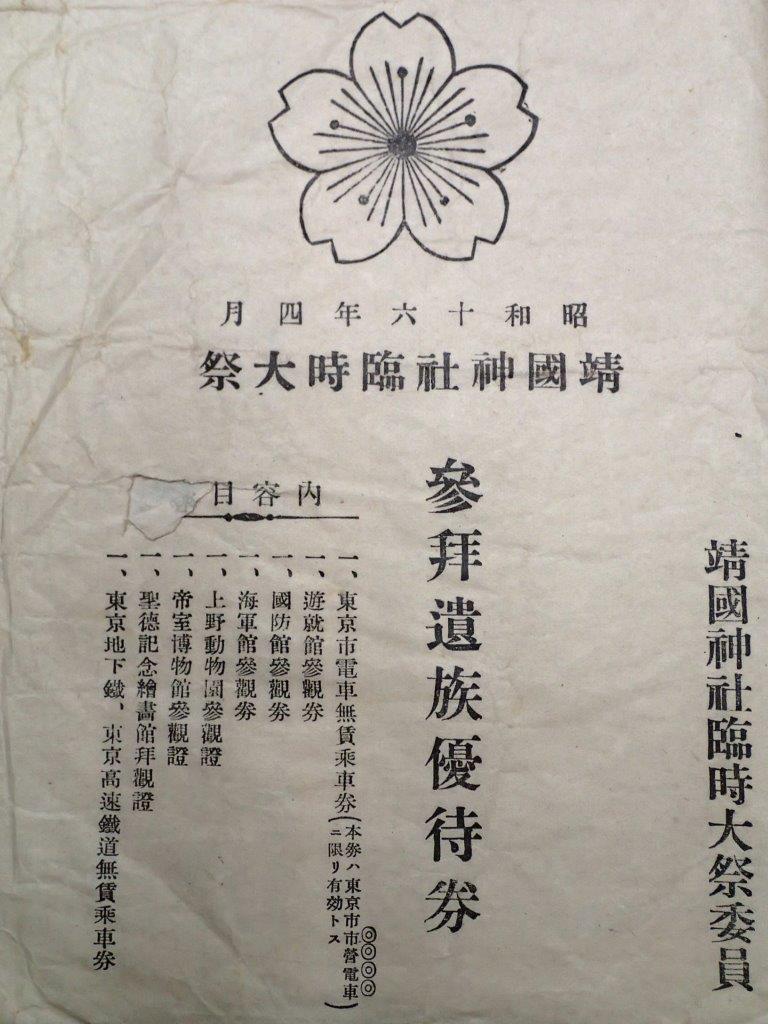 昭和十六年四月
靖國神社臨時大祭
靖國神社臨時大祭委員
參拜遺族優待券
內容目
一、東京市電車無賃乘車券(本券ハ東京市市營電車
ニ限リ有効トス)
一、遊就館參觀券
一、國防館參觀券
一、海軍館參觀券
一、上野動物園參觀證
一、帝室博物館參觀證
一、聖德記念繪畫館拜觀證
一、東京地下鐵、東京高速鐵道無賃乘車券